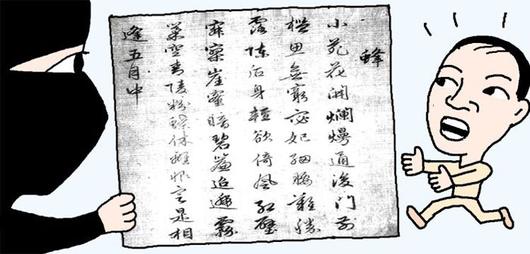 蜂
小苑花開爛熳通後門前
檻思無窮宓妃細腰難勝
露陳后身輕欲倚風紅壁
寂寥崖蜜暗碧簷迢遞霧
巢空青陵粉蝶休離恨定是相
逢五月中